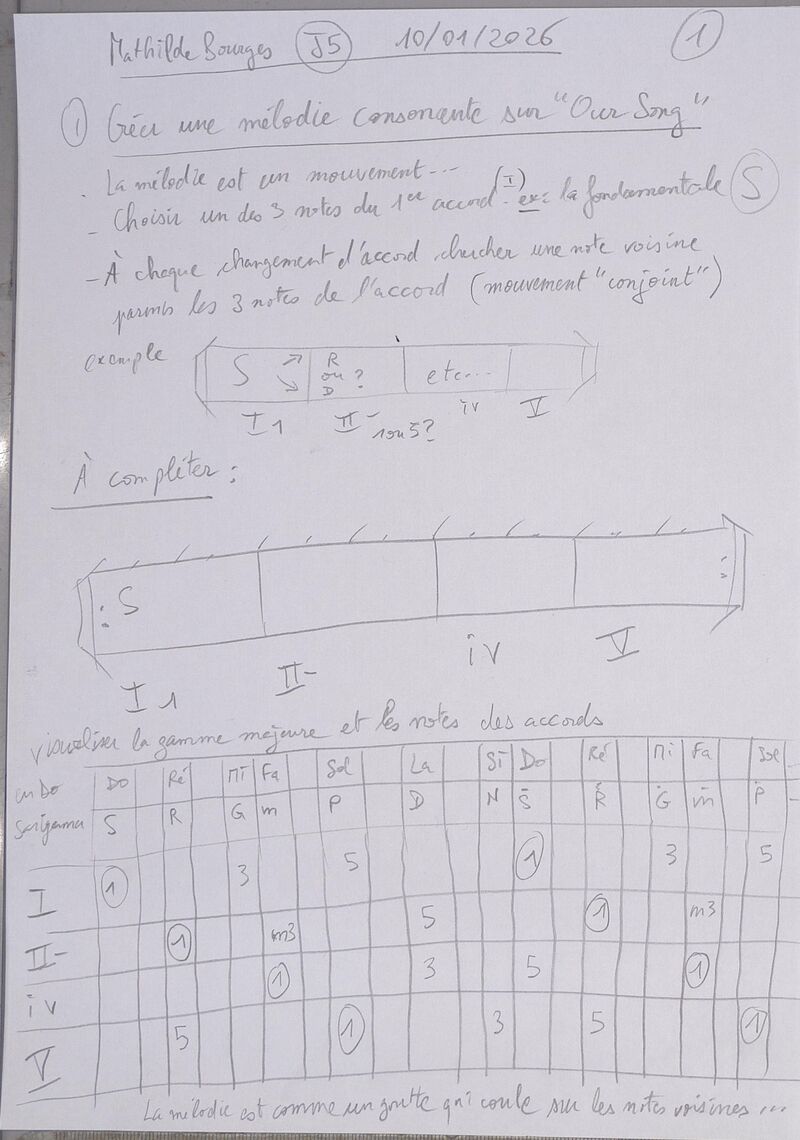 Mathilde Bourges J5 10/01/2026 1
1 Créer une mélodie consonante sur "Our Song"
- La mélodie est un mouvement...
- Choisir un des 3 notes du 1er accord (I) - ex: la fondamentale S
- À chaque changement d'accord chercher une note voisine
parmis les 3 notes de l'accord (mouvement "conjoint")
exemple
S R ou D ? etc...
I 1 II- 1 ou 5? iv V
À compléter :
: S :
I 1 II- iv V
visualiser la gamme majeure et les notes des accords
en Do Do Ré Mi Fa Sol La Si Do Ré Mi Fa Sol
Sargama S R G m P D N Ṡ Ṙ Ġ ṁ Ṗ
I 1 3 5 1 3 5
II- 1 m3 5 1 m3
iv 1 3 5 1
V 5 1 3 5 1
La mélodie est comme un goutte qui coule sur les notes voisines ...